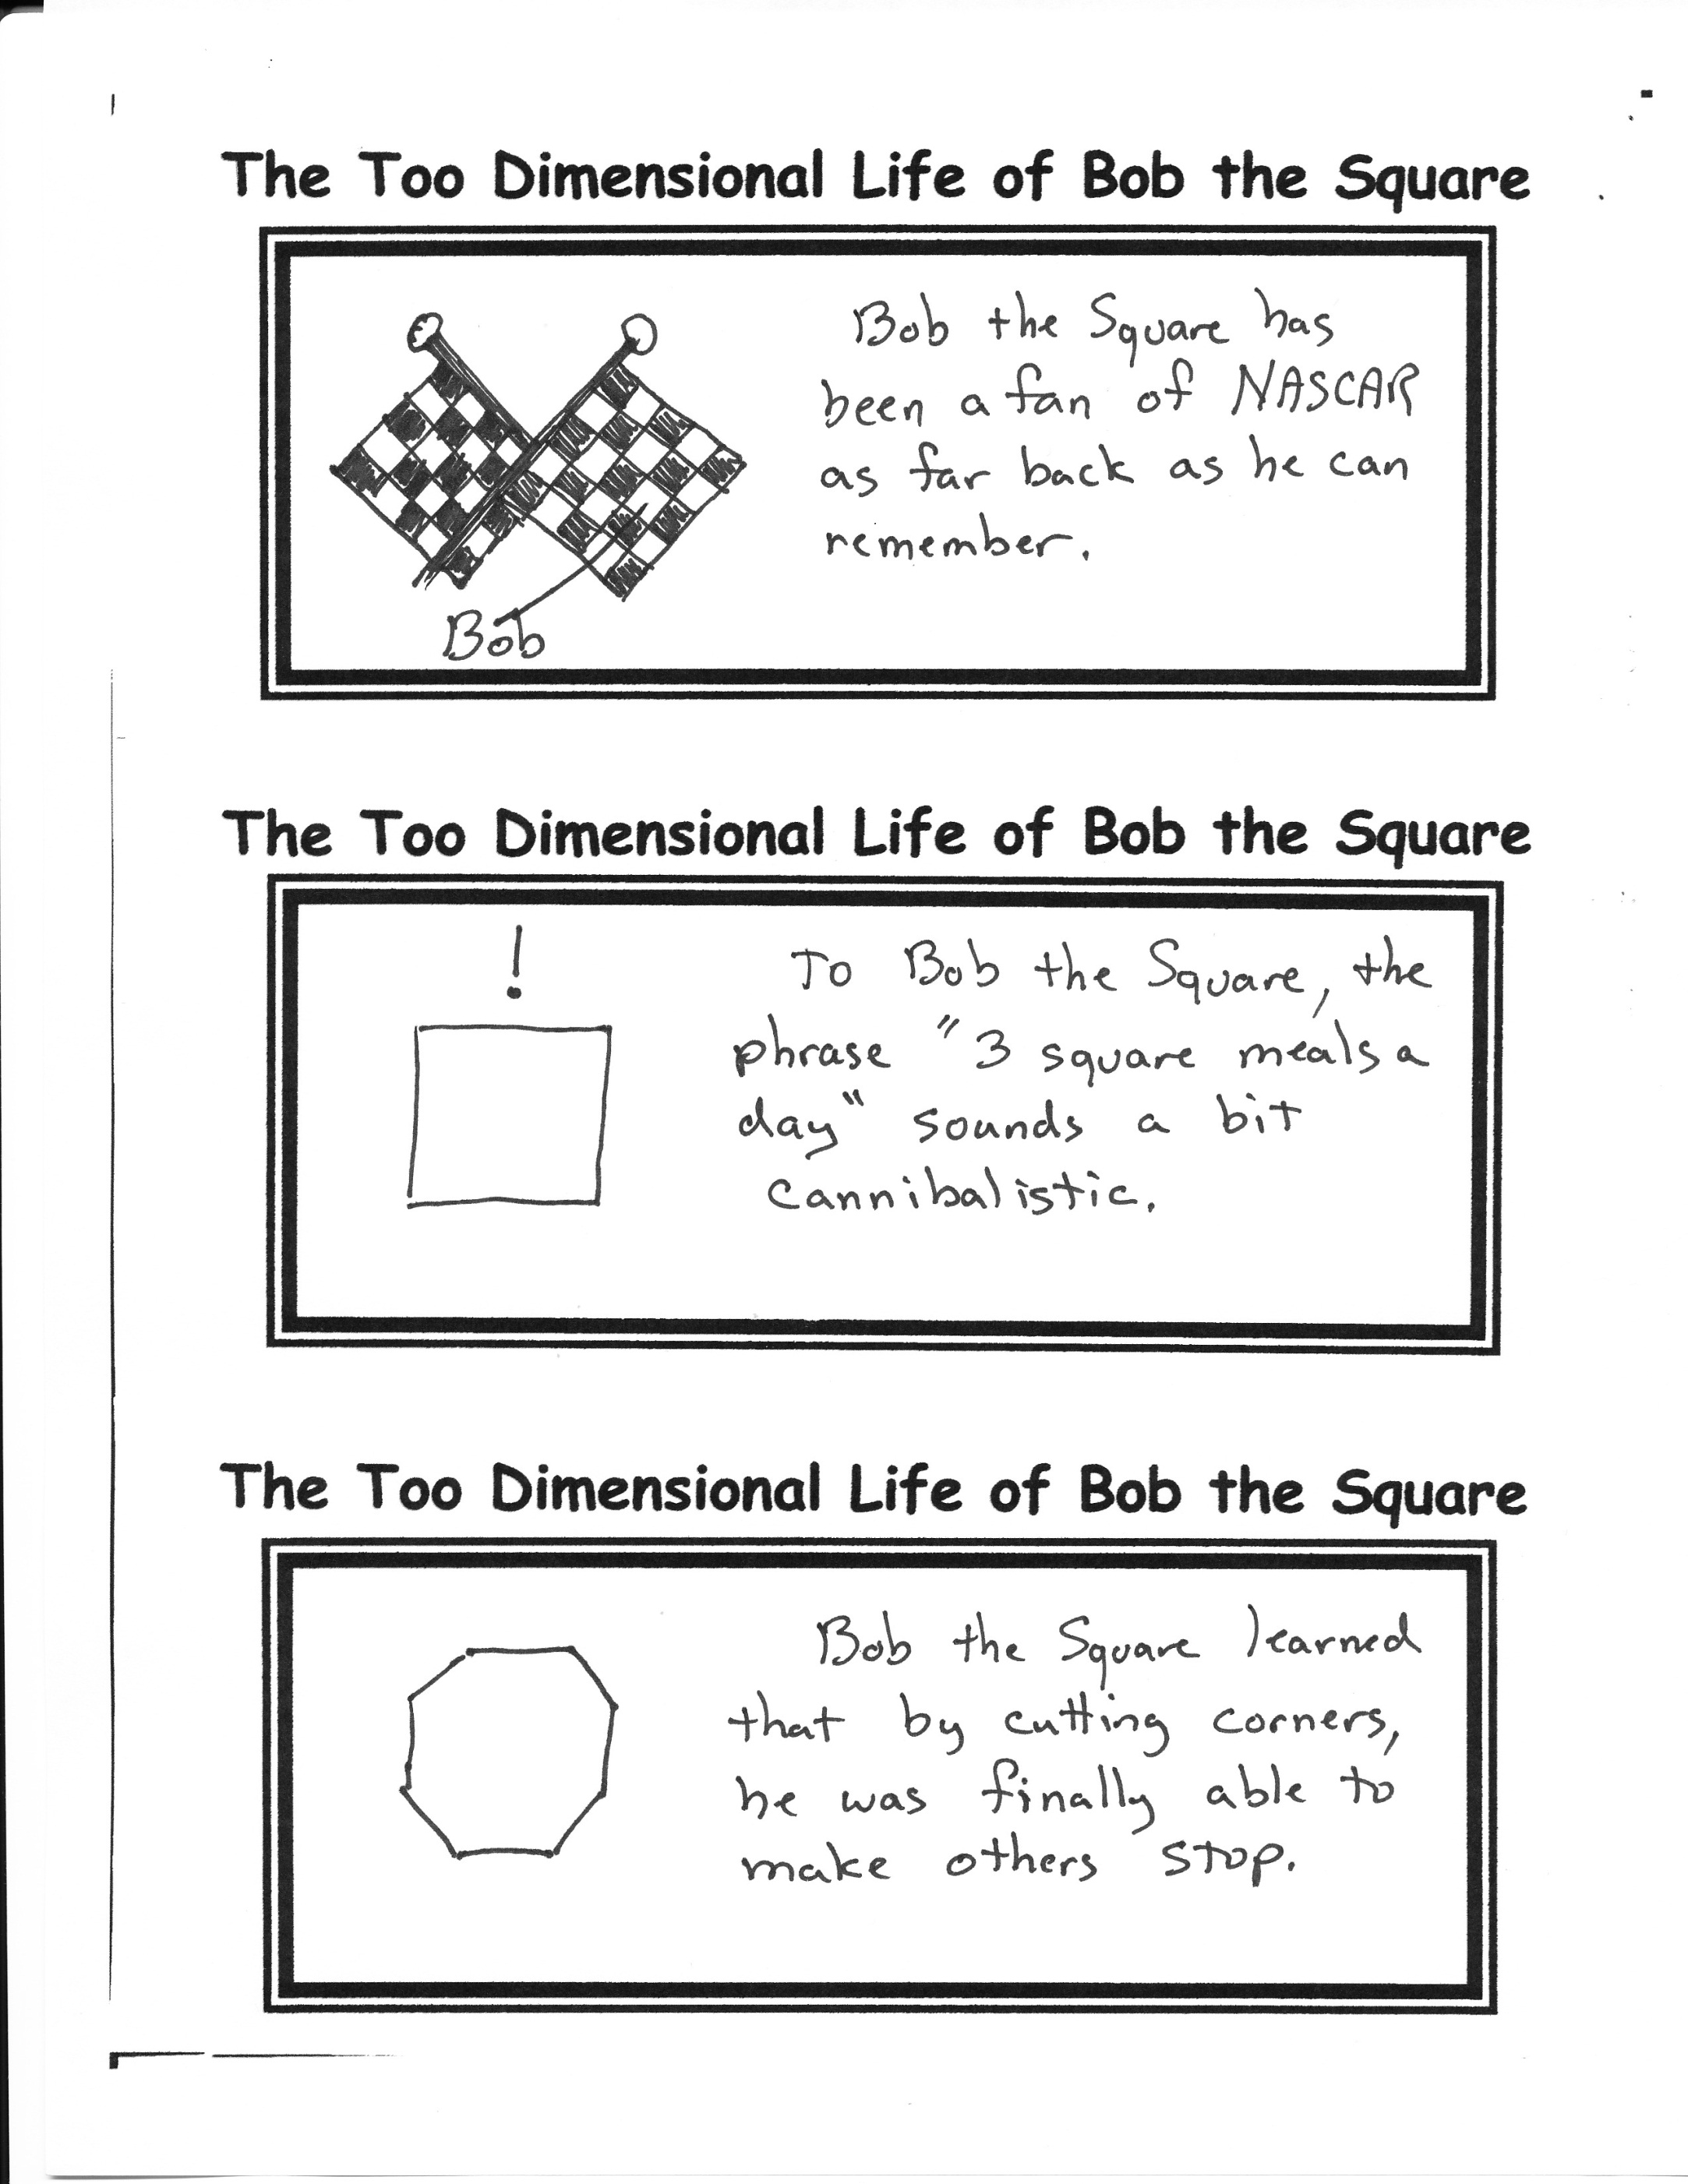 The Too Dimensional Life of Bob the Square
Bob the Square has
been a fan of NASCAR
as far back as he can
remember.
Bob
The Too Dimensional Life of Bob the Square
!
To Bob the Square, the
phrase "3 square meals a
day" sounds a bit
cannibalistic.
The Too Dimensional Life of Bob the Square
Bob the Square learned
that by cutting corners,
he was finally able to
make others stop.